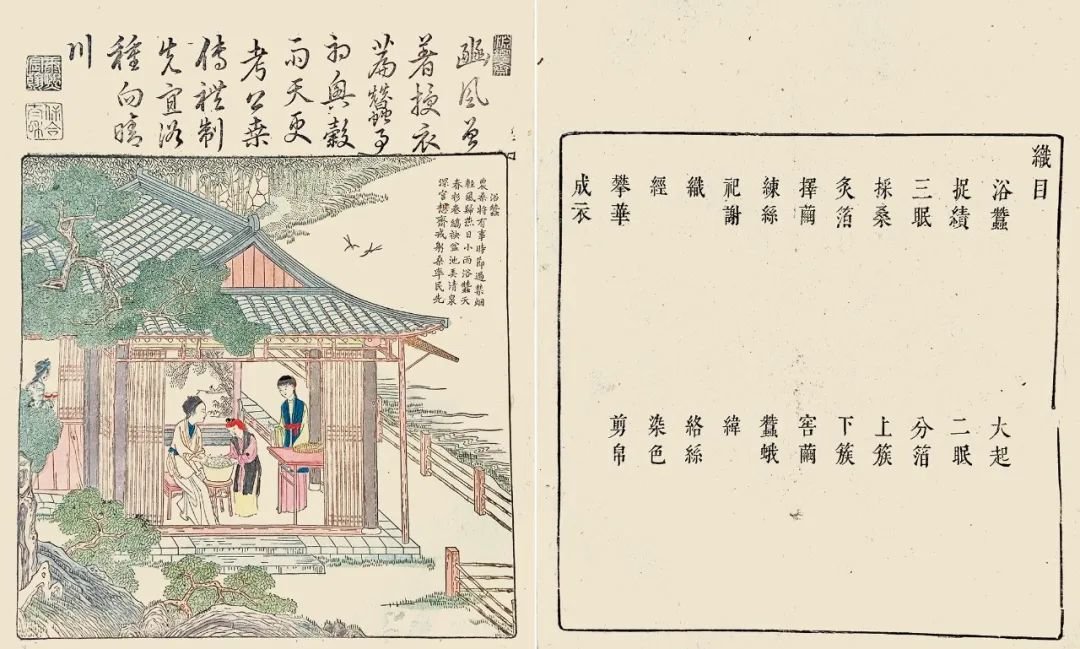 織目
浴蠶 大起
捉績 二眠
三眠 分箔
採桑 上簇
炙箔 下簇
擇繭 窖繭
練絲 蠶蛾
祀謝 緯
織 絡絲
經 染色
攀華 剪帛
成衣
佩文齋
豳風曾
著授衣
篇蠶事
初興穀
雨天更
考公桑
傳禮制
先宜浴
種向晴
川
康熙宸翰
保合太和
浴蠶
農桑將有事時節過禁烟
輕風歸燕日小雨浴蠶天
春衫卷縞袂盆池弄清泉
深宮想齋戒躬桑率民先